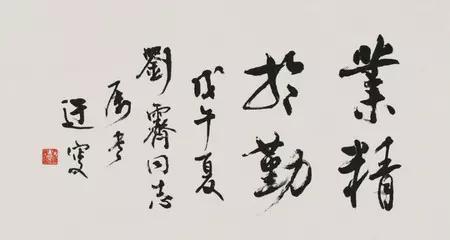 業精
於勤
戊午夏
劉霽同志
属書
迂叟